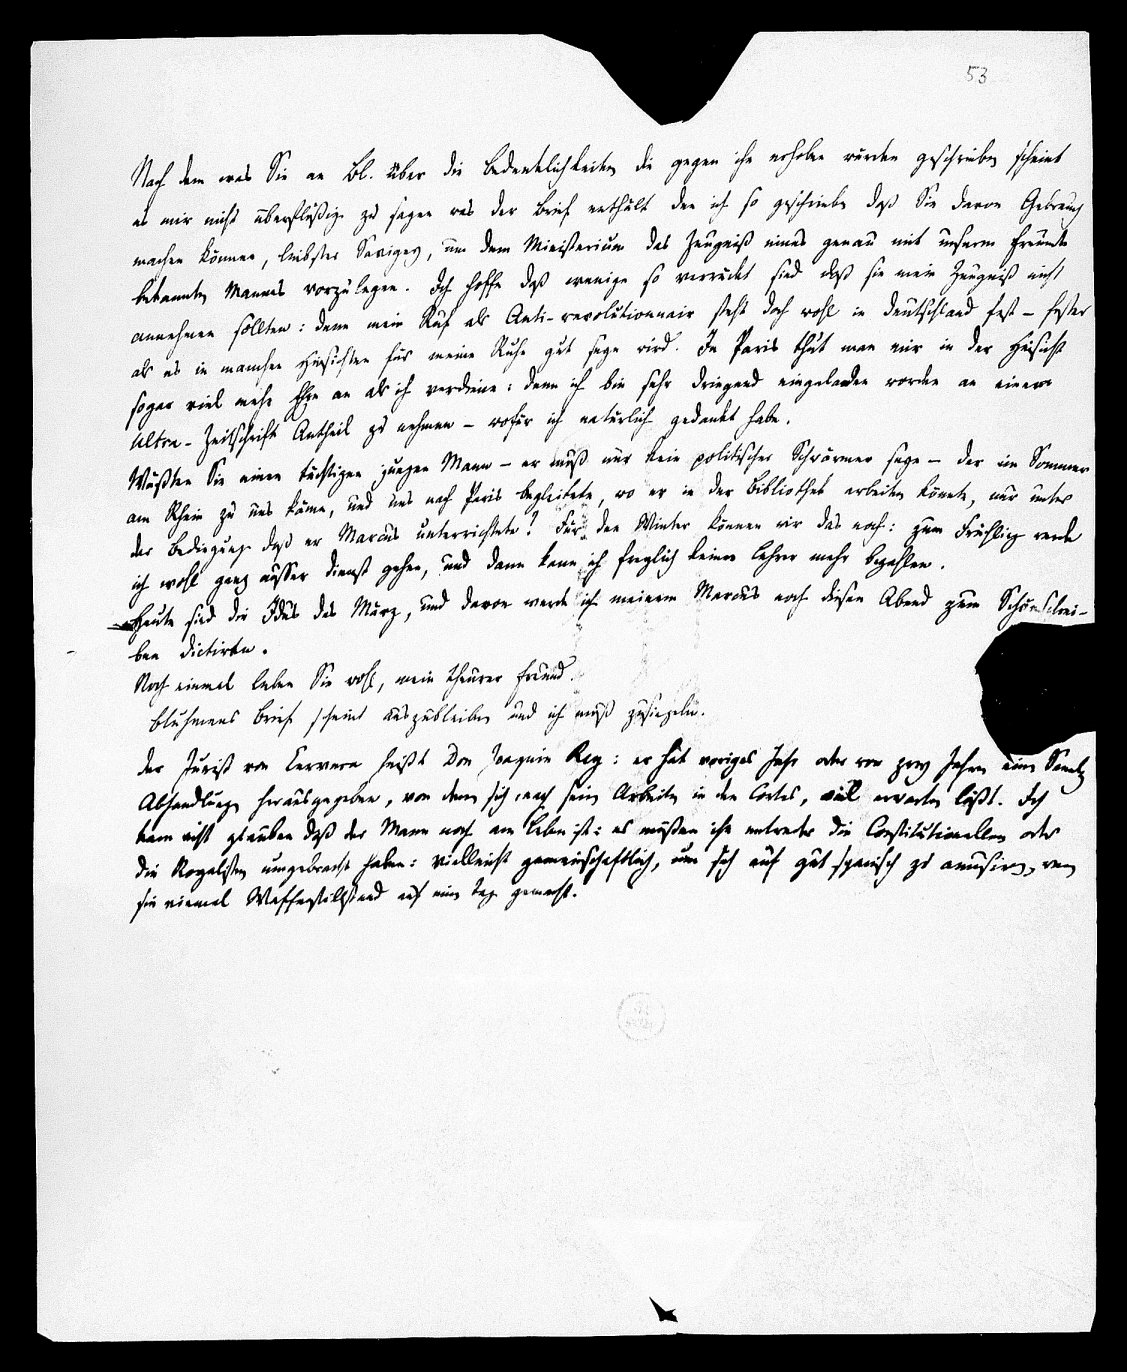 53
Nach dem was Sie an Bl. über die Bedenklichkeiten die gegen ihn erhoben wurden geschrieben scheint
es mir nicht überflüßig zu sagen was der Brief enthält den ich so geschrieben daß Sie davon Gebrauch
machen können, liebster Savigny, um dem Ministerium das Zeugniß eines genau mit unserm Freunde
bekannten Mannes vorzulegen. Ich hoffe daß wenige so verrückt sind daß sie mein Zeugniß nicht
annehmen sollten: denn mein Ruf als Anti-revolutionnair steht doch wohl in Deutschland fest – fester
als es in manchen Hinsichten für meine Ruhe gut seyn wird. In Paris thut man mir in der Hinsicht
sogar viel mehr Ehre an als ich verdiene: denn ich bin sehr dringend eingeladen worden an einer
Ultra-Zeitschrift Antheil zu nehmen – wofür ich natürlich gedankt habe.
Wüßten Sie einen tüchtigen jungen Mann – er muß nur kein politischer Schwärmer seyn – der im Sommer
am Rhein zu uns käme, und uns nach Paris begleitete, wo er in der Bibliothek arbeiten könnte, nur unter
der Bedingung daß er Marcus unterrichtete? Für den Winter können wir das noch: zum Frühling werde
ich wohl ganz ausser Dienst gehen, und dann kann ich freylich keinen Lehrer mehr bezahlen.
Heute sind die Idus des März, und davon werde ich meinem Marcus noch diesen Abend zum Schönschrei-
ben dictiren.
Noch einmal leben Sie wohl, mein theurer Freund.
Bluhmens Brief scheint auszubleiben und ich muß zusiegeln.
Der Jurist von Cervera heißt Don Joaquin Rey: er hat voriges Jahr oder vor zwey Jahren eine
Abhandlungen herausgegeben, von dem sich, nach seinen Arbeiten in den Cortes, viel erwarten läßt. Ich
kann nicht glauben daß der Mann noch am Leben ist: es müßten ihn entweder die Constitutionellen oder
die Royalisten umgebracht haben: vielleicht gemeinschaftlich, um sich auf gut spanisch zu amusiren, wenn
sie einmal Waffenstillstand auf einen Tag gemacht.